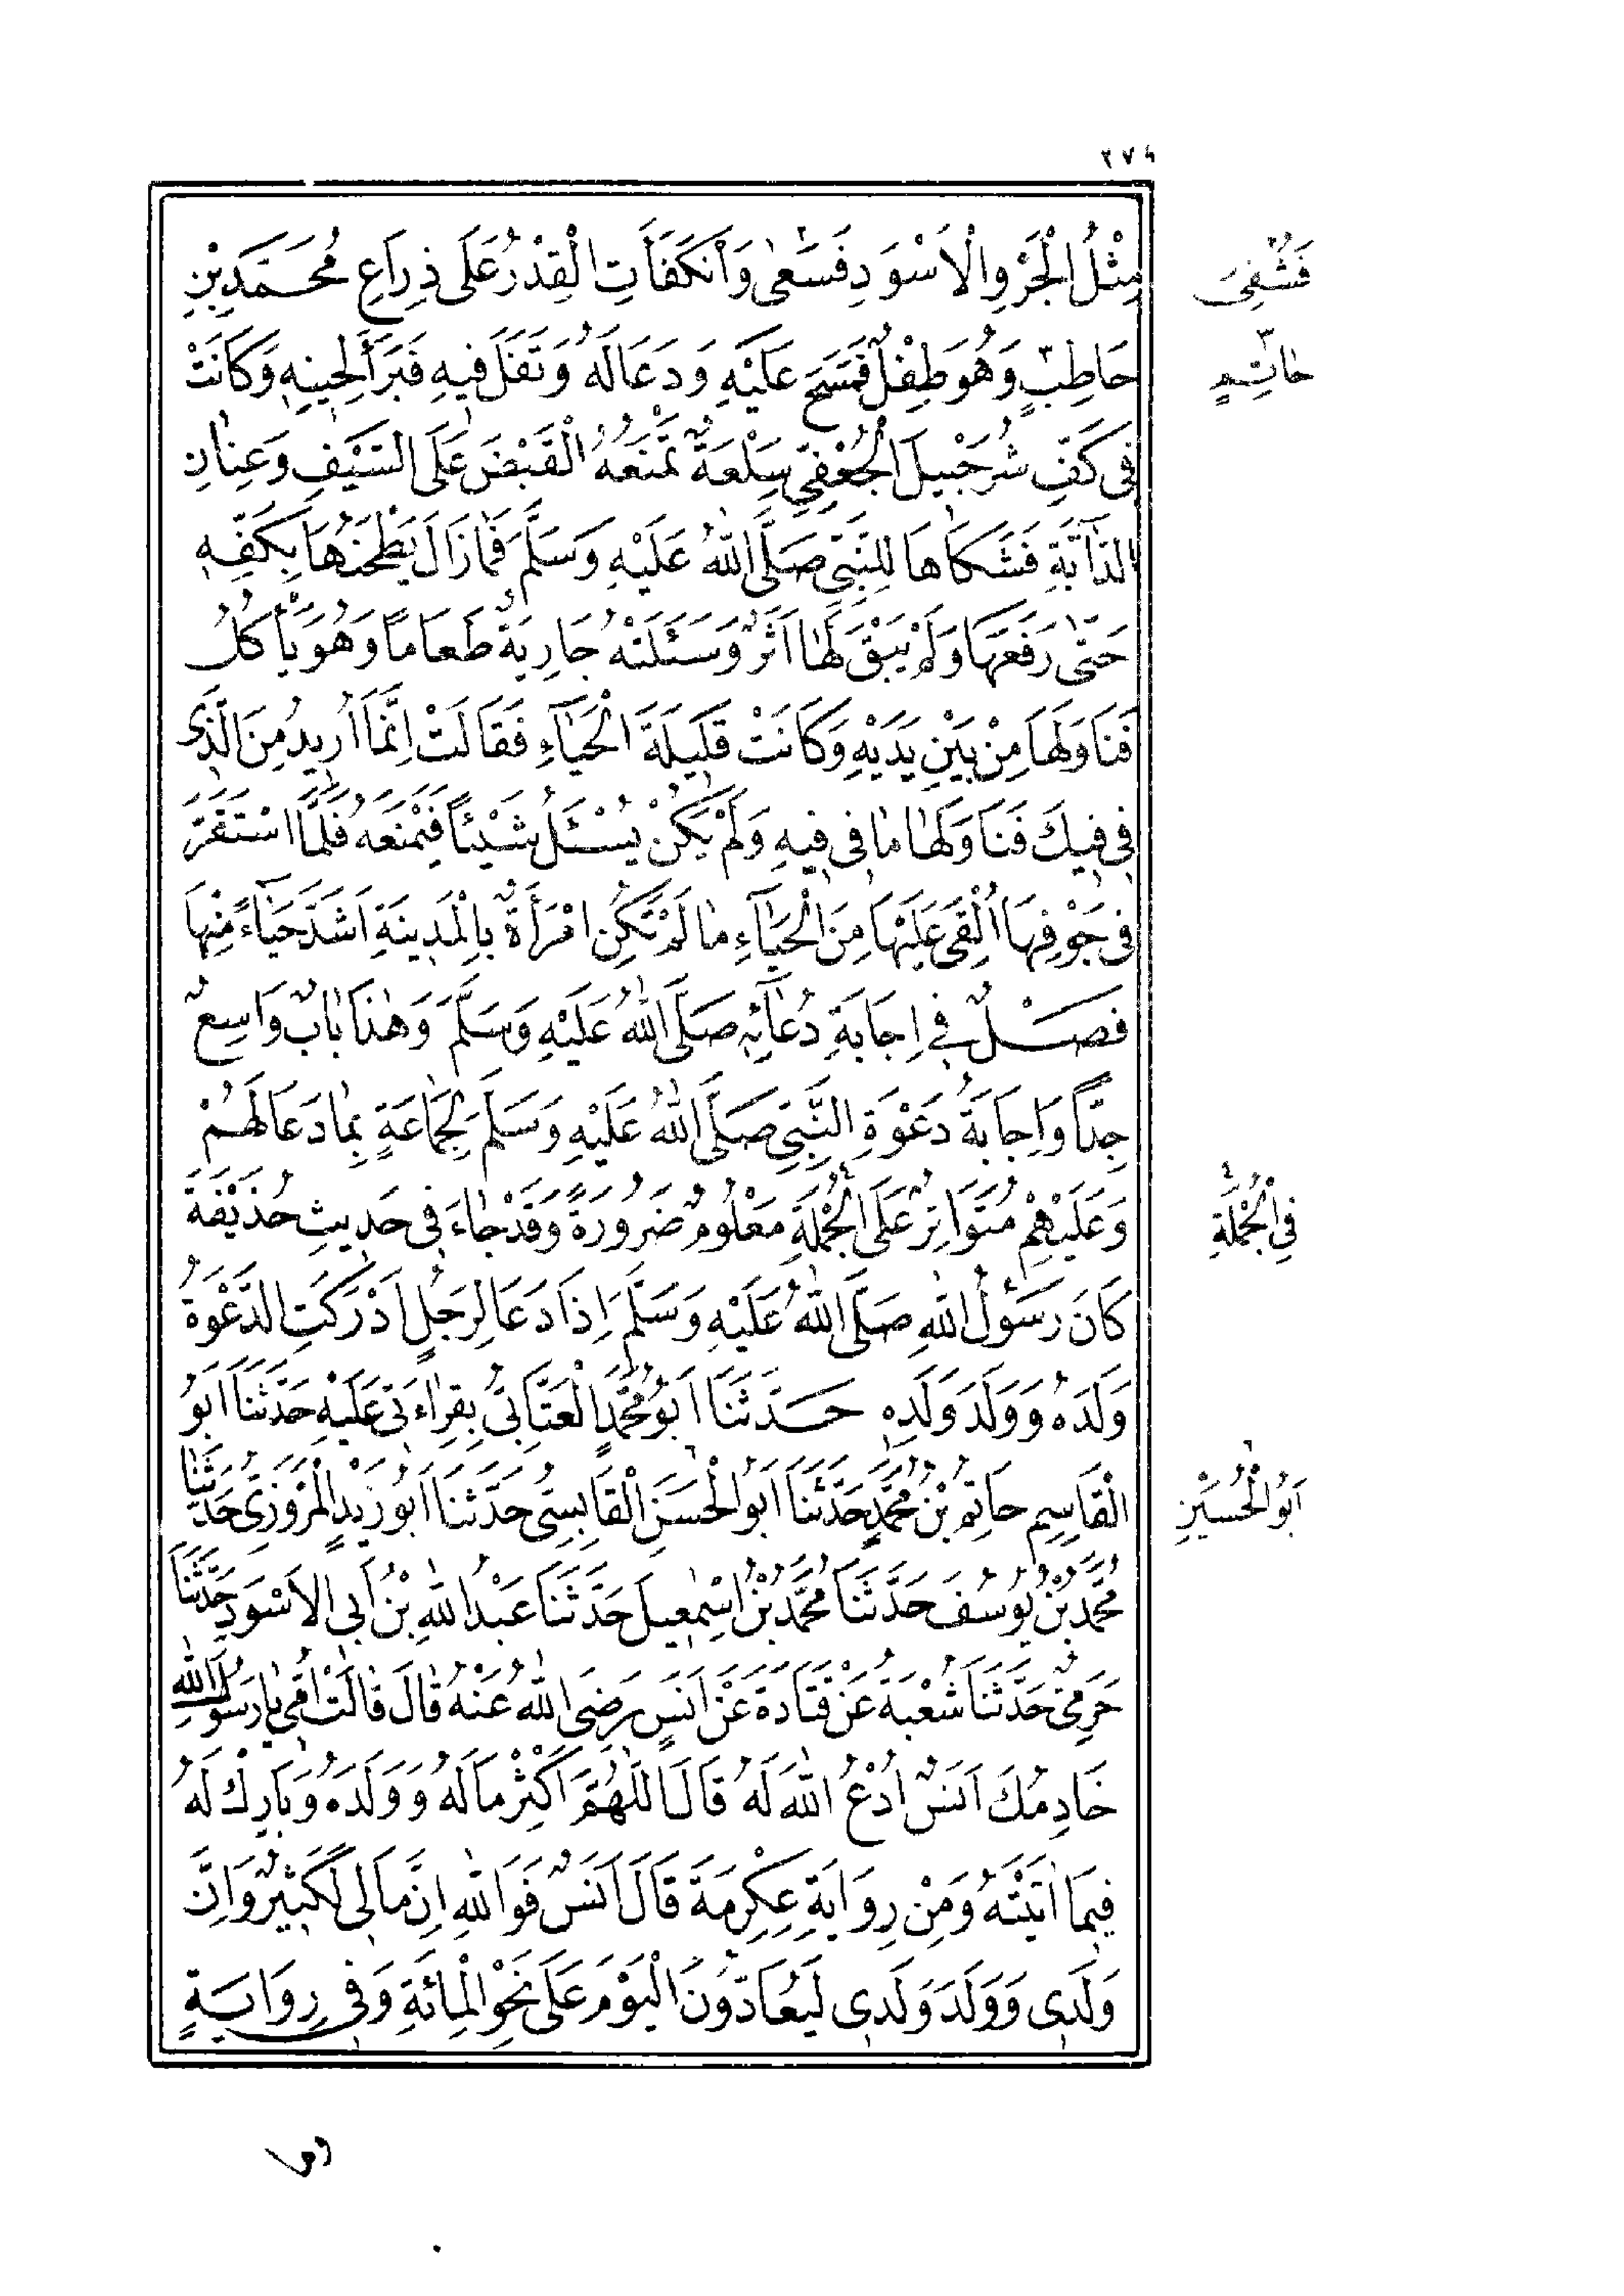 ٢٧٩
مِثْلُ الْجَرْوِ الْاَسْوَدِ فَسَعٰى وَانْكَفَأَتِ الْقِدْرُ عَلٰى ذِرَاعِ مُحَمَّدِ بْنِ
فَشُفِىَ
حَاطِبٍ وَهُوَ طِفْلٌ فَمَسَحَ عَلَيْهِ وَدَعَالَهُ وَتَفَلَ فِيهِ فَبَرَأَ لِحِينِهِ وَكَانَتْ
حَاتِمٍ
فِى كَفِّ شُرَحْبِيلَ الْجُعْفِيِّ سِلْعَةٌ تَمْنَعُهُ الْقَبْضَ عَلَى السَّيْفِ وَعِنَانِ
الدَّآبَّةِ فَشَكَاهَا لِلنَّبِيِّ صَلَّى اللّٰهُ عَلَيْهِ وَسَلَّمَ فَمَا زَالَ يَطْحَنُهَا بِكَفِّهِ
حَتّٰى رَفَعَهَا وَلَمْ يَبْقَ لَهَا اَثَرٌ وَسَئَلَتْهُ جَارِيَةٌ طَعَامًا وَهُوَ يَأْكُلُ
فَنَاوَلَهَا مِنْ بَيْنِ يَدَيْهِ وَكَانَتْ قَلِيلَةَ الْحَيَآءِ فَقَالَتْ اِنَّمَا اُرِيدُ مِنَ الَّذِى
فِى فِيكَ فَنَاوَلَهَا مَا فِى فِيهِ وَلَمْ يَكُنْ يُسْئَلُ شَيْئًا فَيَمْنَعَهُ فَلَمَّا اسْتَقَرَّ
فِى جَوْفِهَا اُلْقِىَ عَلَيْهَا مِنَ الْحَيَآءِ مَا لَمْ تَكُنِ امْرَأَةٌ بِالْمَدِينَةِ اَشَدَّ حَيَآءً مِنْهَا
فَصْلٌ فِى اِجَابَةِ دُعَآئِهِ صَلَّى اللّٰهُ عَلَيْهِ وَسَلَّمَ وَهٰذَا بَابٌ وَاسِعٌ
جِدًّا وَاِجَابَةُ دَعْوَةِ النَّبِيِّ صَلَّى اللّٰهُ عَلَيْهِ وَسَلَّمَ لِجَمَاعَةٍ بِمَا دَعَا لَهُمْ
وَعَلَيْهِمْ مُتَوَاتِرٌ عَلَى الْجُمْلَةِ مَعْلُومٌ ضَرُورَةً وَقَدْ جَاءَ فِى حَدِيثِ حُذَيْفَةَ
فِى الْجُمْلَةِ
كَانَ رَسُولُ اللّٰهِ صَلَّى اللّٰهُ عَلَيْهِ وَسَلَّمَ اِذَا دَعَا لِرَجُلٍ اَدْرَكَتِ الدَّعْوَةُ
وَلَدَهُ وَوَلَدَ وَلَدِهِ حَدَّثَنَا اَبُو مُحَمَّدٍ الْعَتَّابِىُّ بِقِرَاءَتِى عَلَيْهِ حَدَّثَنَا اَبُو
الْقَاسِمِ حَاتِمُ بْنُ مُحَمَّدٍ حَدَّثَنَا اَبُو الْحَسَنِ الْقَابِسِىُّ حَدَّثَنَا اَبُو زَيْدٍ الْمَرْوَزِىُّ حَدَّثَنَا
اَبُو الْحُسَيْنِ
مُحَمَّدُ بْنُ يُوسُفَ حَدَّثَنَا مُحَمَّدُ بْنُ اِسْمٰعِيلَ حَدَّثَنَا عَبْدُ اللّٰهِ بْنُ اَبِى الْاَسْوَدِ حَدَّثَنَا
حَرَمِىٌّ حَدَّثَنَا شُعْبَةُ عَنْ قَتَادَةَ عَنْ اَنَسٍ رَضِىَ اللّٰهُ عَنْهُ قَالَ قَالَتْ اُمِّى يَا رَسُولَ اللّٰهِ
خَادِمُكَ اَنَسٌ اُدْعُ اللّٰهَ لَهُ قَالَ اللّٰهُمَّ اَكْثِرْ مَالَهُ وَوَلَدَهُ وَبَارِكْ لَهُ
فِيمَا اٰتَيْتَهُ وَمِنْ رِوَايَةِ عِكْرِمَةَ قَالَ اَنَسٌ فَوَاللّٰهِ اِنَّ مَالِى لَكَثِيرٌ وَاِنَّ
وَلَدِى وَوَلَدَ وَلَدِى لَيُعَادُّونَ الْيَوْمَ عَلٰى نَحْوِ الْمِائَةِ وَفِى رِوَايَةٍ